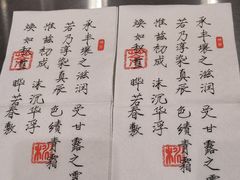 承丰壤之滋润
受甘露之
若乃淳染真辰
色绩青霜
惟兹初成
沫沉华浮
焕如
晔若春敷
承丰壤之滋润
受甘露之
若乃淳染真辰
色绩青霜
惟兹初成
沫沉华浮
焕如
晔若春敷